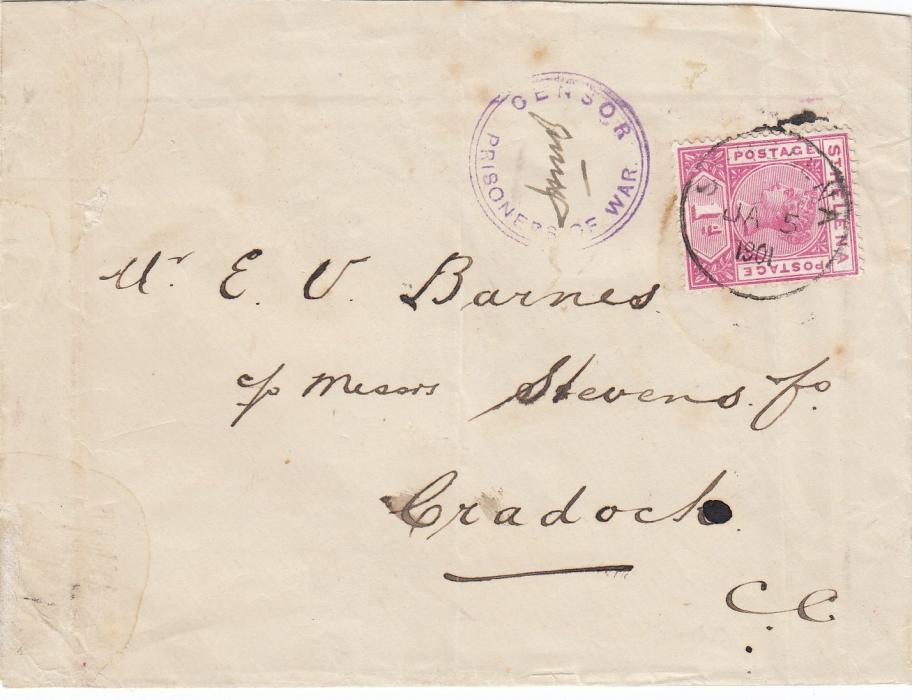 CENSOR
PRISONERS OF WAR.
POSTAGE
ST HELENA
POSTAGE
JA 5
1901
Mr E. V. Barnes
c/o Messrs Stevens & Co.
Cradock.
C C